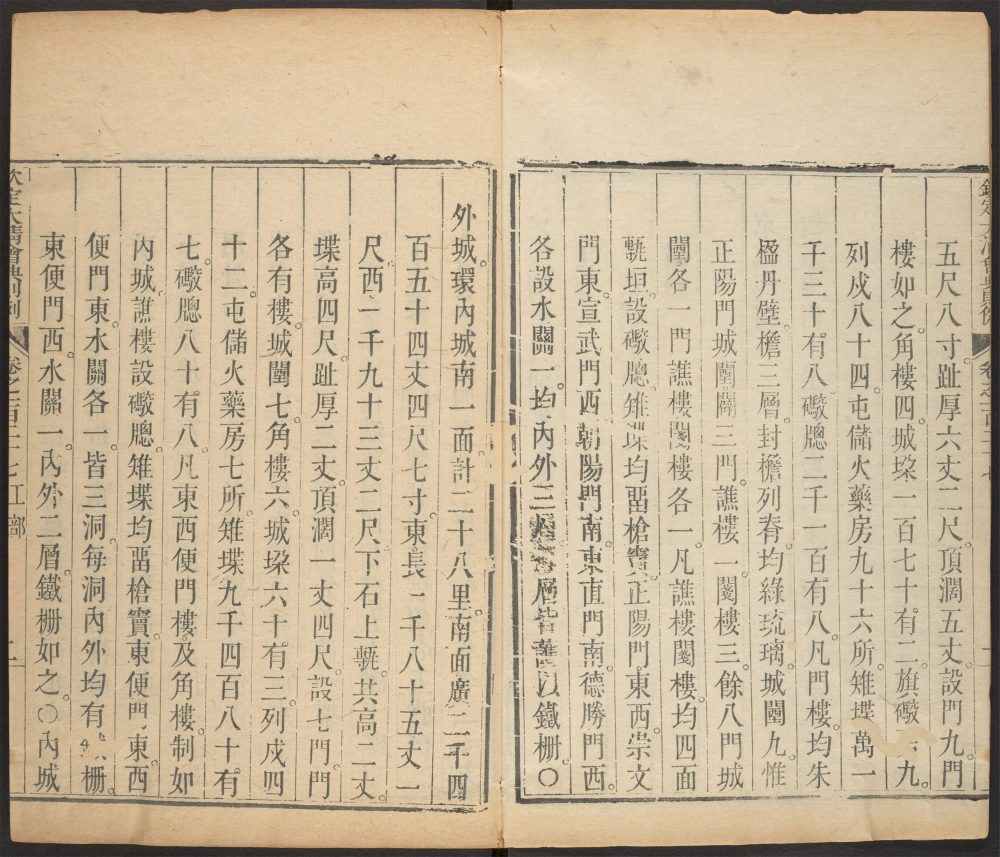 五尺八寸。趾厚六丈二尺。頂濶五丈。設門九。門
樓如之。角樓四。城垜一百七十有二。旗礟九。
列戍八十四。屯儲火藥房九十六所。雉堞萬一
千三十有八。礟牕二千一百有八。凡門樓。均朱
楹丹壁。檐三層。封檐列脊。均綠琉璃。城闉九。惟
正陽門城闉闢三門。譙樓一。閿樓三。餘八門城
闉。各一門。譙樓閿樓各一。凡譙樓閿樓。均四面
甎垣。設礟牕。雉堞均畱槍竇。正陽門東西。崇文
門東。宣武門西。朝陽門南。東直門南。德勝門西。
各設水關一。均內外三層鐵柵。〇
外城。環內城南一面。計二十八里。南面廣二千四
百五十四丈四尺七寸。東長一千八十五丈一
尺。西一千九十三丈二尺。下石上甎。共高二丈。
堞高四尺。趾厚二丈。頂濶一丈四尺。設七門。門
各有樓。城闉七。角樓六。城垜六十有三。列戍四
十二。屯儲火藥房七所。雉堞九千四百八十有
七。礟牕八十有八。凡東西便門樓。及角樓。制如
內城。譙樓設礟牕。雉堞均畱槍竇。東便門東。西
便門東。水關各一。皆三洞。每洞內外均有柵。
東便門西。水關一。內外二層。鐵柵如之。〇內城
欽定大清會典則例 卷之一百二十七 工部